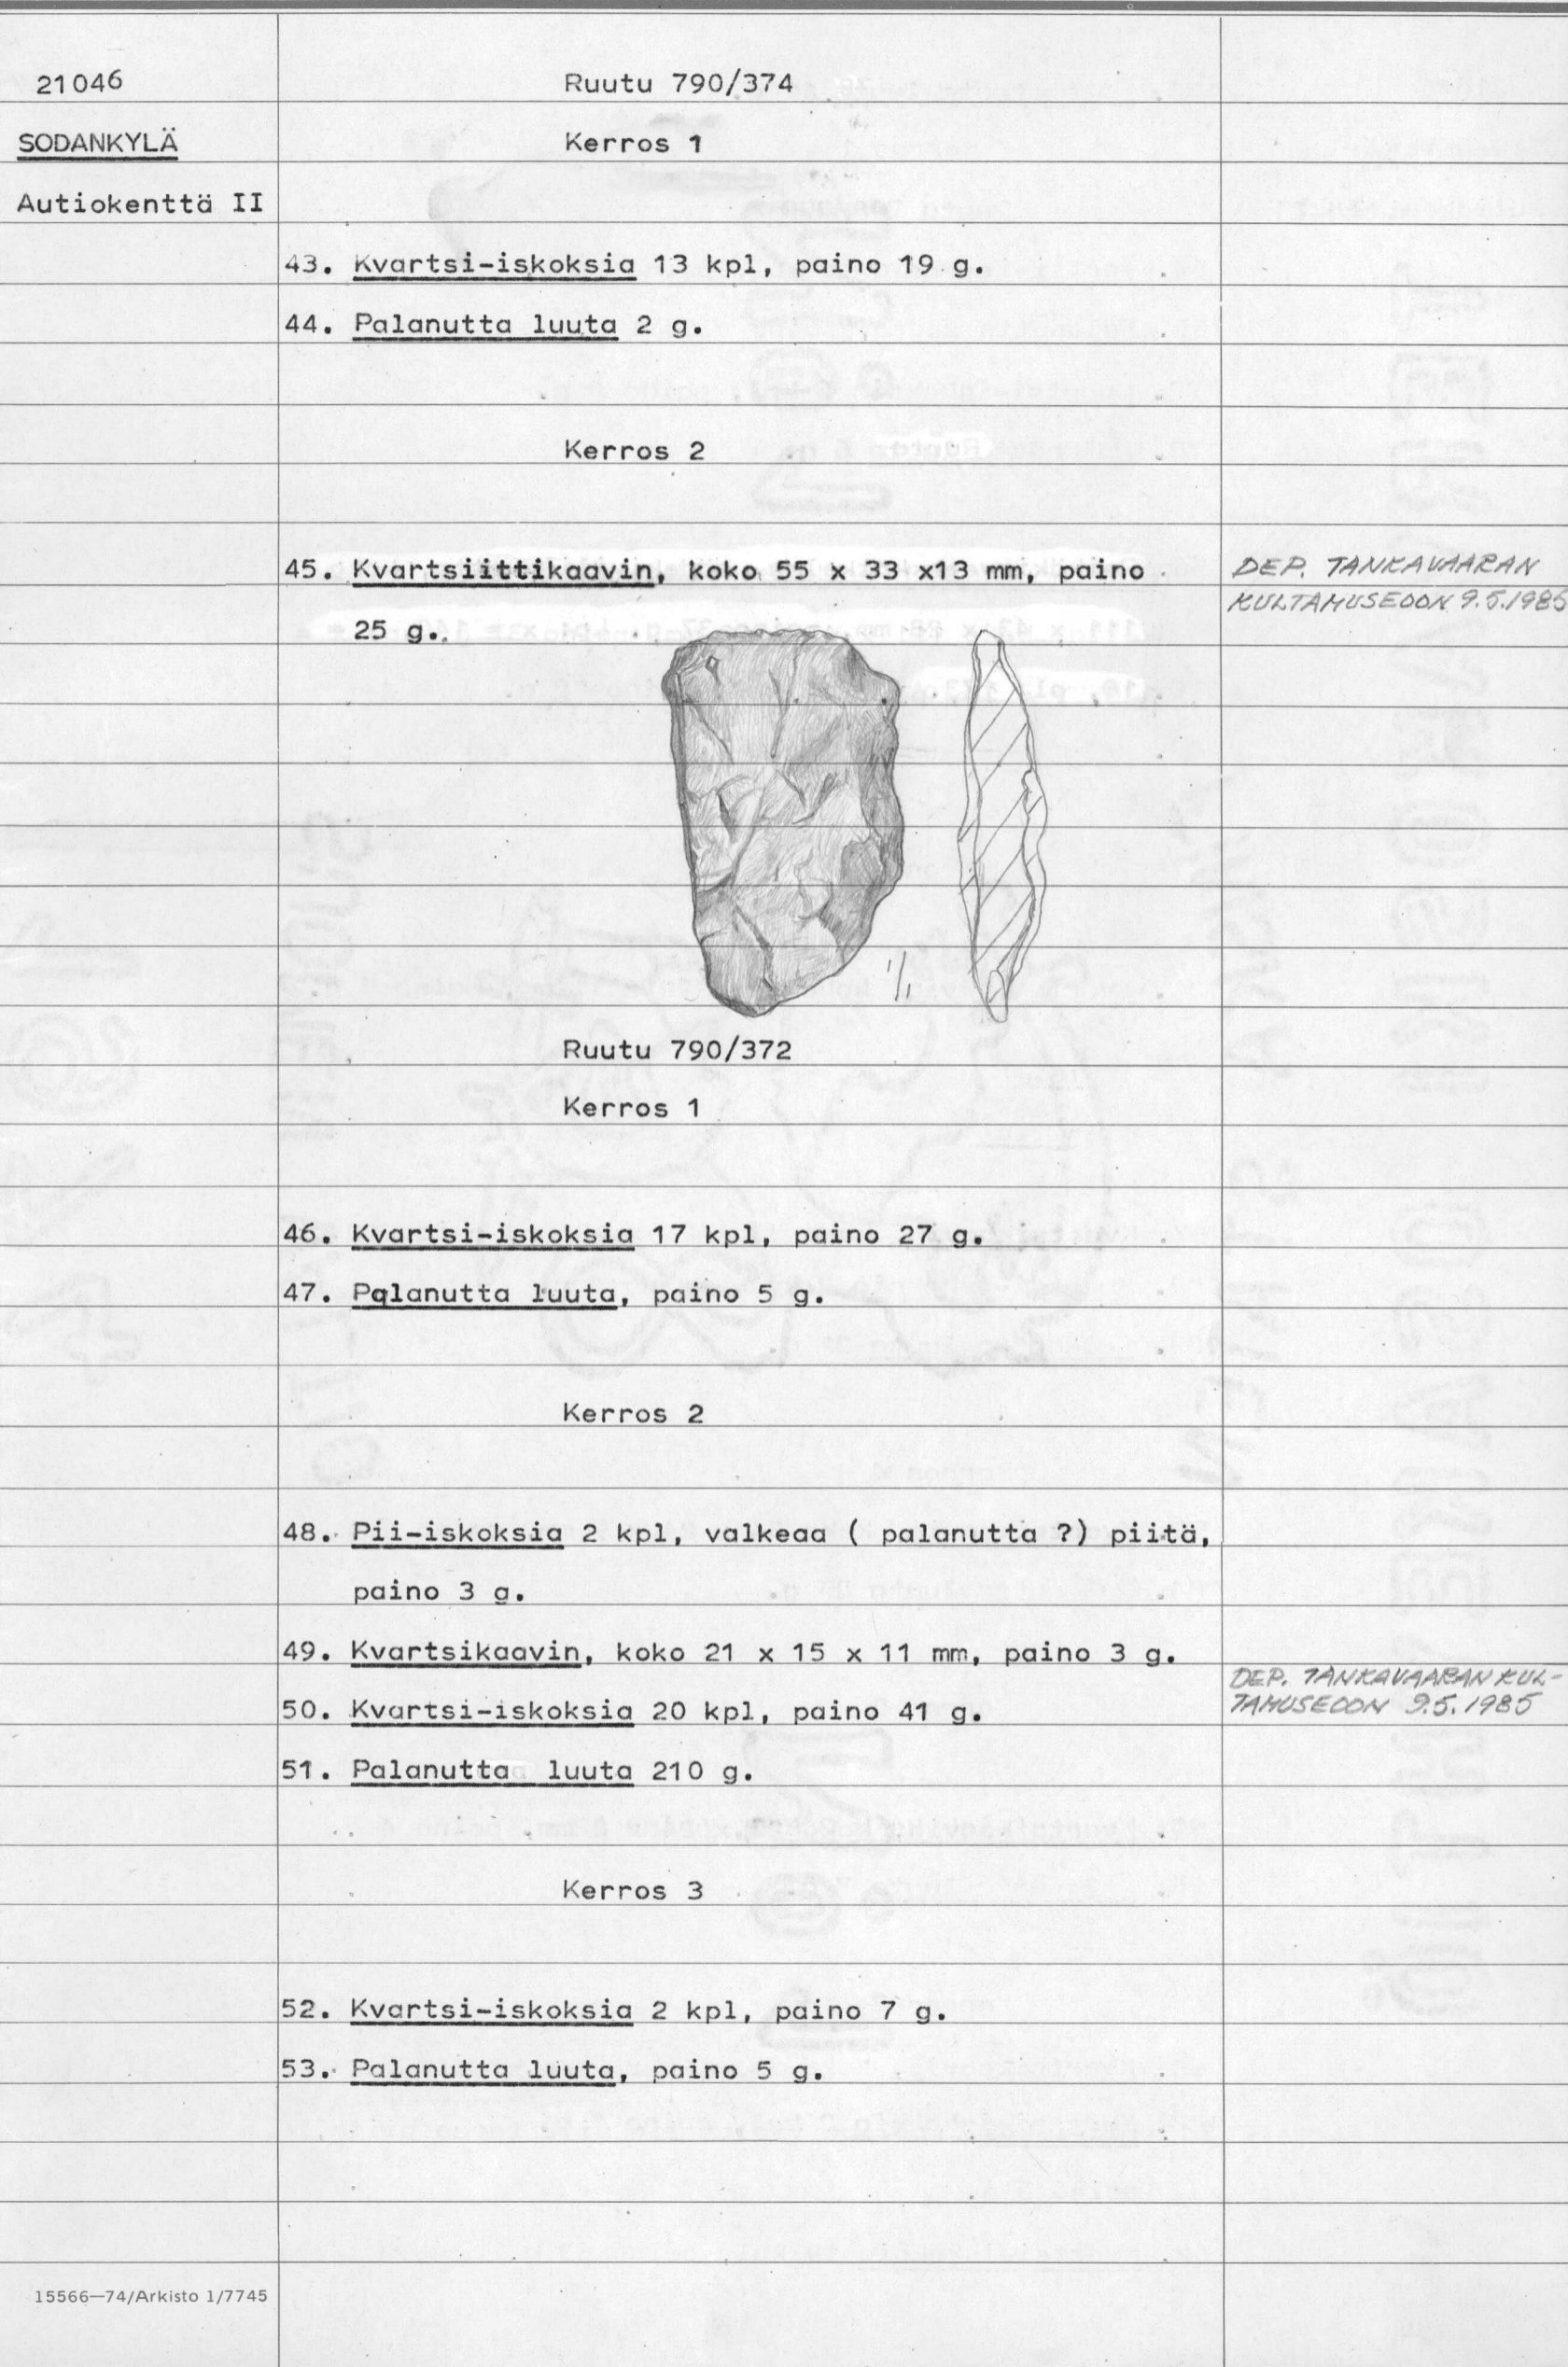 21046
Ruutu 790/374
SODANKYLÄ
Kerros 1
Autiokenttä II
43. Kvartsi-iskoksia 13 kpl, paino 19 g.
44. Palanutta luuta 2 g.
Kerros 2
45. Kvartsiittikaavin, koko 55 x 33 x13 mm, paino
25 g.
DEP. TANKAVAARAN
KULTAMUSEOON 9.5.1985
1/1
Ruutu 790/372
Kerros 1
46. Kvartsi-iskoksia 17 kpl, paino 27 g.
47. Palanutta luuta, paino 5 g.
Kerros 2
48. Pii-iskoksia 2 kpl, valkeaa ( palanutta ?) piitä,
paino 3 g.
49. Kvartsikaavin, koko 21 x 15 x 11 mm, paino 3 g.
DEP. TANKAVAARAN KUL-
TAMUSEOON 9.5.1985
50. Kvartsi-iskoksia 20 kpl, paino 41 g.
51. Palanutta luuta 210 g.
Kerros 3
52. Kvartsi-iskoksia 2 kpl, paino 7 g.
53. Palanutta luuta, paino 5 g.
15566—74/Arkisto 1/7745